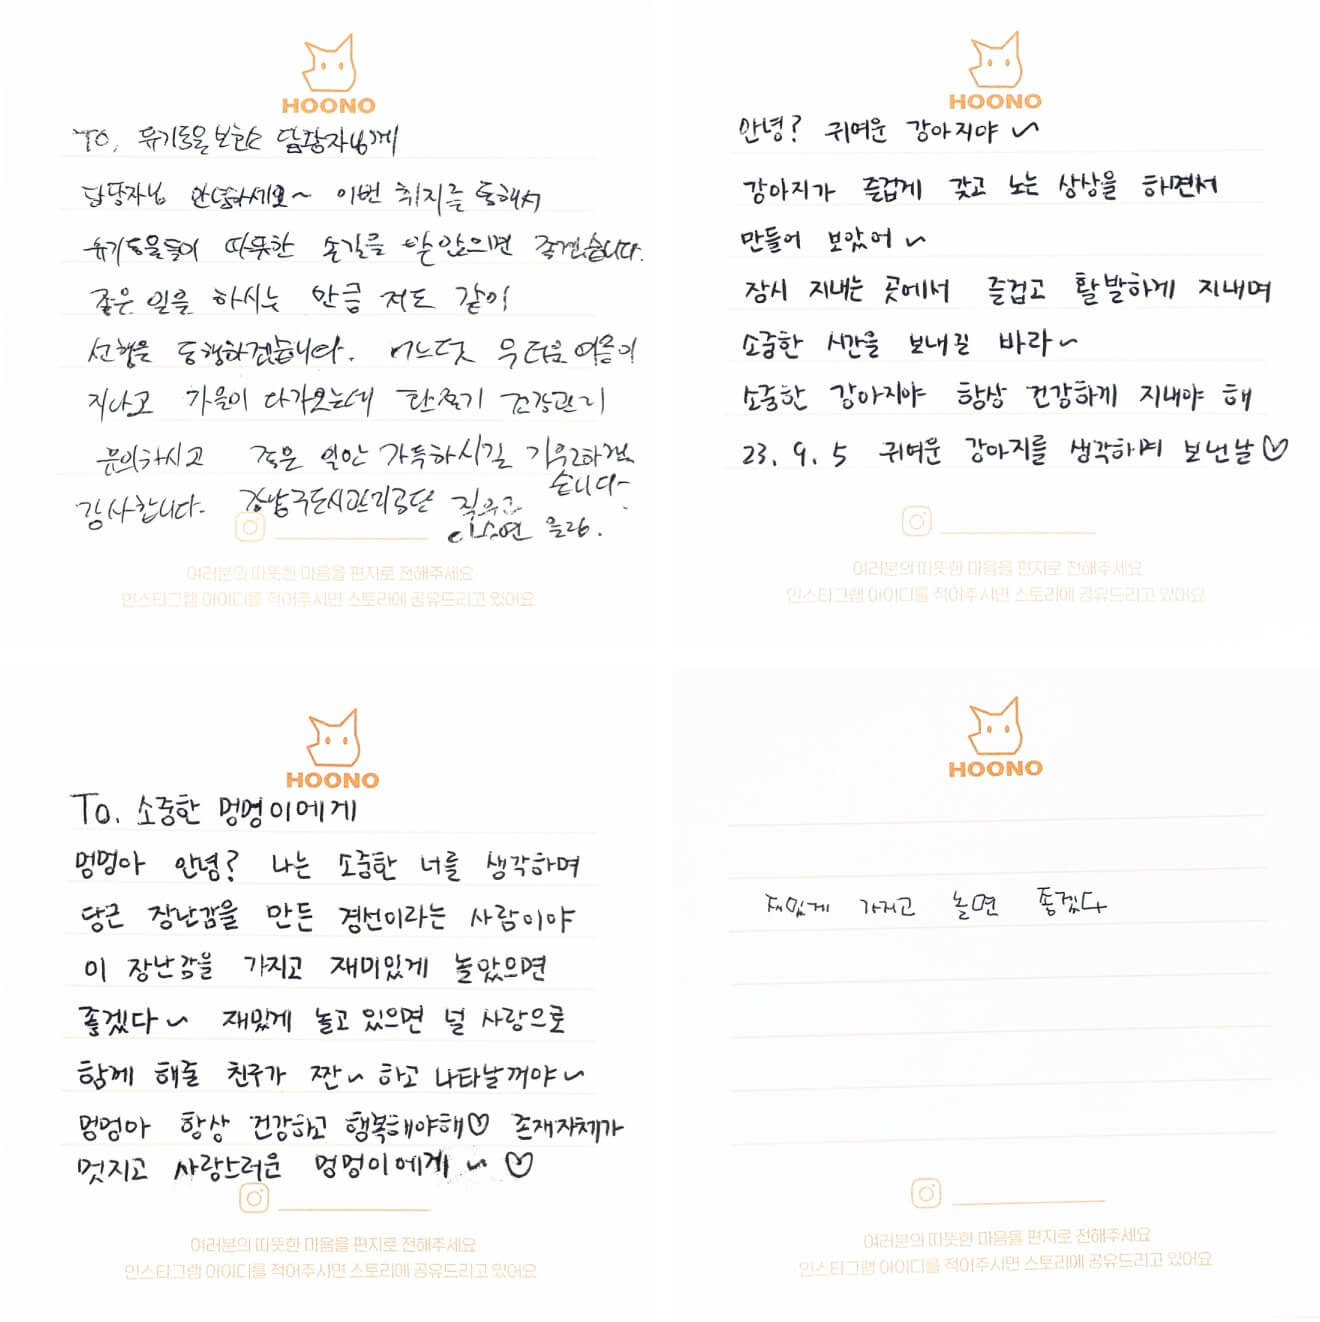 HOONO
TO, 유기동물보호소 담당자님께
담당자님 안녕하세요~ 이번 취지를 통해서
유기동물들이 따뜻한 손길을 받았으면 좋겠습니다.
좋은 일을 하시는 만큼 저도 같이
선행을 동행하겠습니다. 어느덧 무더운 여름이
지나고 가을이 다가오는데 환절기 건강관리
유의하시고 좋은 일만 가득하시길 기원하겠
습니다~
감사합니다. 강남구도시관리공단
이소연 올림.
여러분의 따뜻한 마음을 편지로 전해주세요
인스타그램 아이디를 적어주시면 스토리에 공유드리고 있어요
HOONO
안녕? 귀여운 강아지야~
강아지가 즐겁게 갖고 노는 상상을 하면서
만들어 보았어~
잠시 지내는 곳에서 즐겁고 활발하게 지내며
소중한 시간을 보내길 바라~
소중한 강아지야 항상 건강하게 지내야 해
23. 9. 5 귀여운 강아지를 생각하며 보낸날♡
여러분의 따뜻한 마음을 편지로 전해주세요
인스타그램 아이디를 적어주시면 스토리에 공유드리고 있어요
HOONO
To. 소중한 멍멍이에게
멍멍아 안녕? 나는 소중한 너를 생각하며
당근 장난감을 만든 경선이라는 사람이야
이 장난감을 가지고 재미있게 놀았으면
좋겠다~ 재밌게 놀고 있으면 널 사랑으로
함께 해줄 친구가 짠~ 하고 나타날꺼야~
멍멍아 항상 건강하고 행복해야해♡ 존재자체가
멋지고 사랑스러운 멍멍이에게~♡
여러분의 따뜻한 마음을 편지로 전해주세요
인스타그램 아이디를 적어주시면 스토리에 공유드리고 있어요
HOONO
재밌게 가지고 놀면 좋겠다
여러분의 따뜻한 마음을 편지로 전해주세요
인스타그램 아이디를 적어주시면 스토리에 공유드리고 있어요